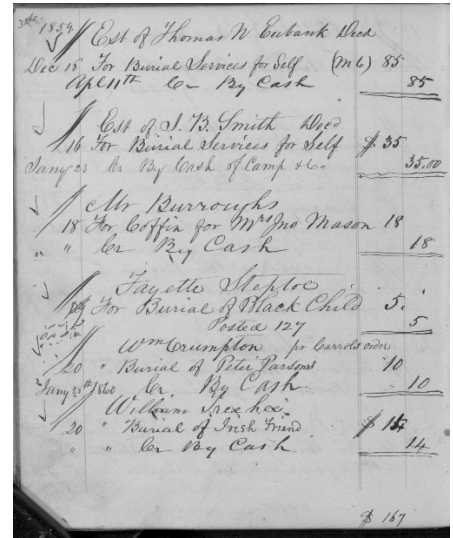 1859 Est of Thomas N Eubank Decd
Dec 15 For Burial Services for Self (M6) 85
Apl 11th Cr By Cash 85
Est of S. B. Smith Decd
16 For Burial Services for Self $ 35
Jany 23 Cr By Cash of Camp & Co. 35.00
Mr Burroughs
18 For Coffin for Mrs Jno Mason 18
" Cr By Cash 18
Fayette Steptoe
19 For Burial of Black Child 5.
Posted 127 5
Wm Crumpton pr Carrols order
20 " Burial of Peter Parsons 10
Jany 28th 1860 Cr By Cash 10
William
20 " Burial of Irish Friend $ 14
" " Cr By Cash 14
$ 167